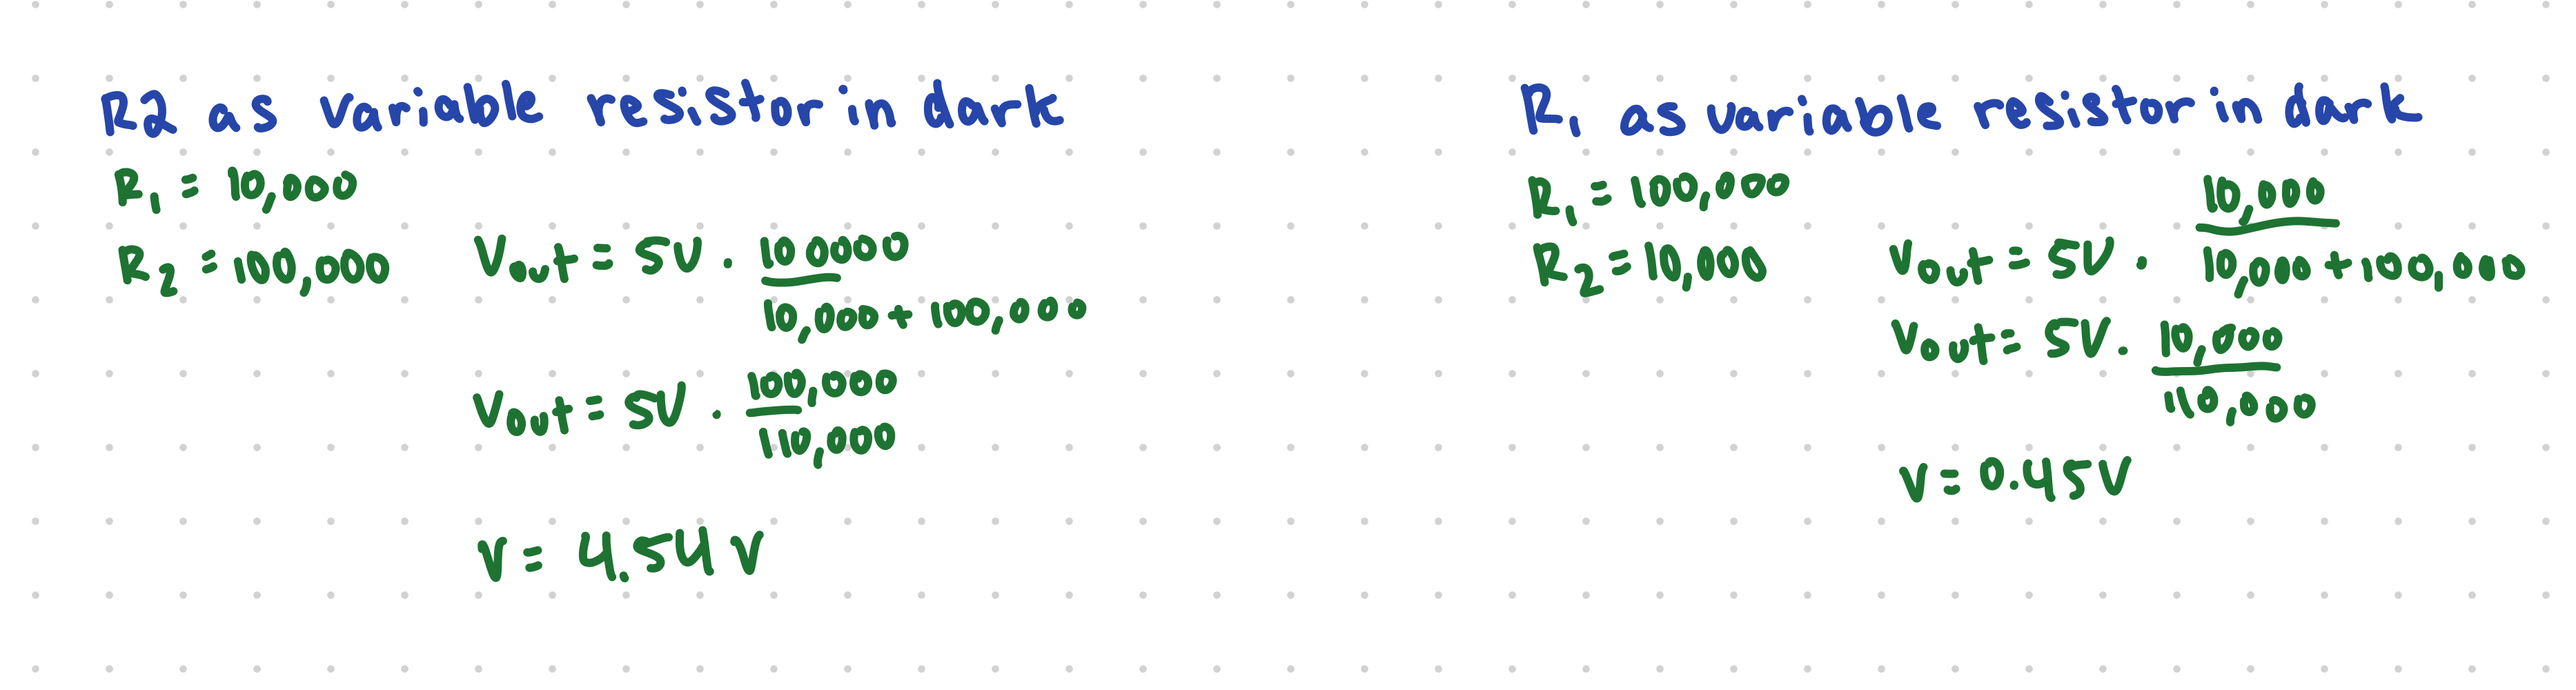 R2 as variable resistor in dark
R₁ = 10,000
R₂ = 100,000
Vout = 5V · 100000
10,000 + 100,000
Vout = 5V · 100,000
110,000
V = 4.54 V
R₁ as variable resistor in dark
R₁ = 100,000
R₂ = 10,000
10,000
Vout = 5V · 10,000 + 100,000
Vout = 5V · 10,000
110,000
V = 0.45V